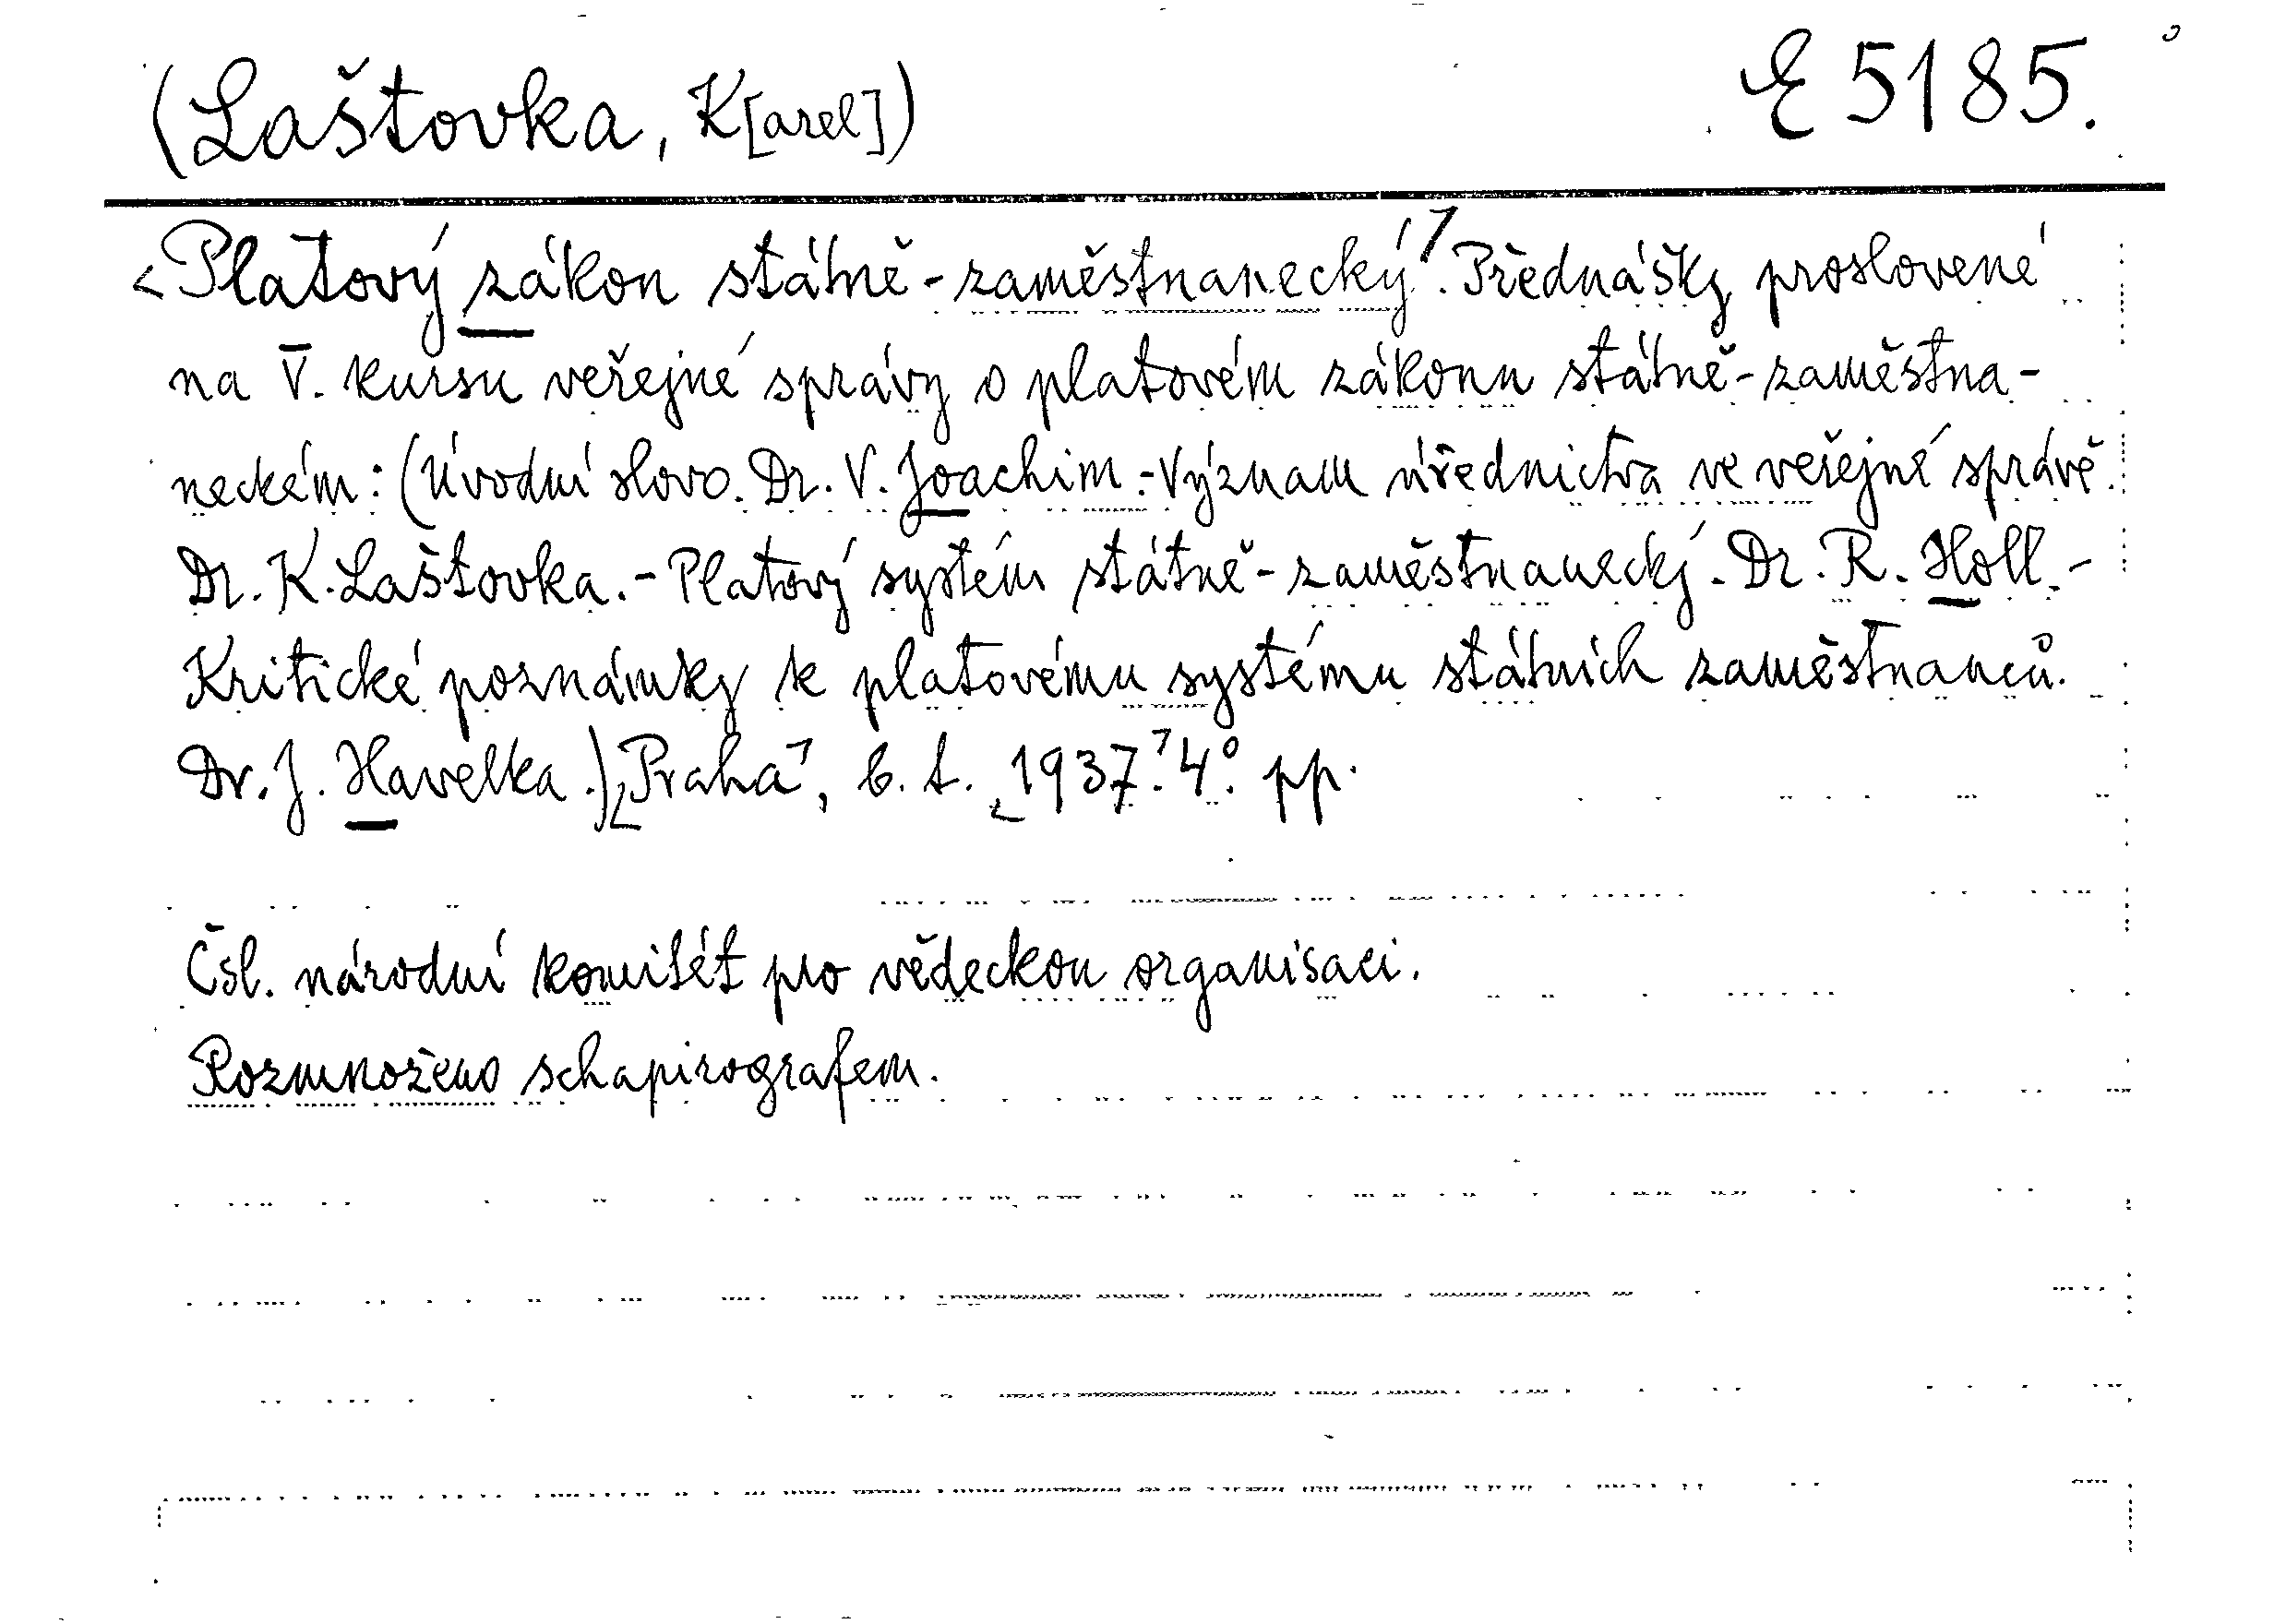 (Laštovka, K[arel]) E 5185.
[Platový zákon státně-zaměstnanecký]. Přednášky proslovené
na V. kursu veřejné správy o platovém zákonu státně-zaměstna-
neckém: (Úvodní slovo. Dr. V. Joachim.-Význam úřednictva ve veřejné správě.
Dr. K. Laštovka.-Platový systém státně-zaměstnanecký. Dr. R. Holl.-
Kritické poznámky k platovému systému státních zaměstnanců.
Dr. J. Havelka.) [Praha], b. t. [1937]. 4°. pp.
Čsl. národní komitét pro vědeckou organisaci.
Rozmnoženo schapirografem.